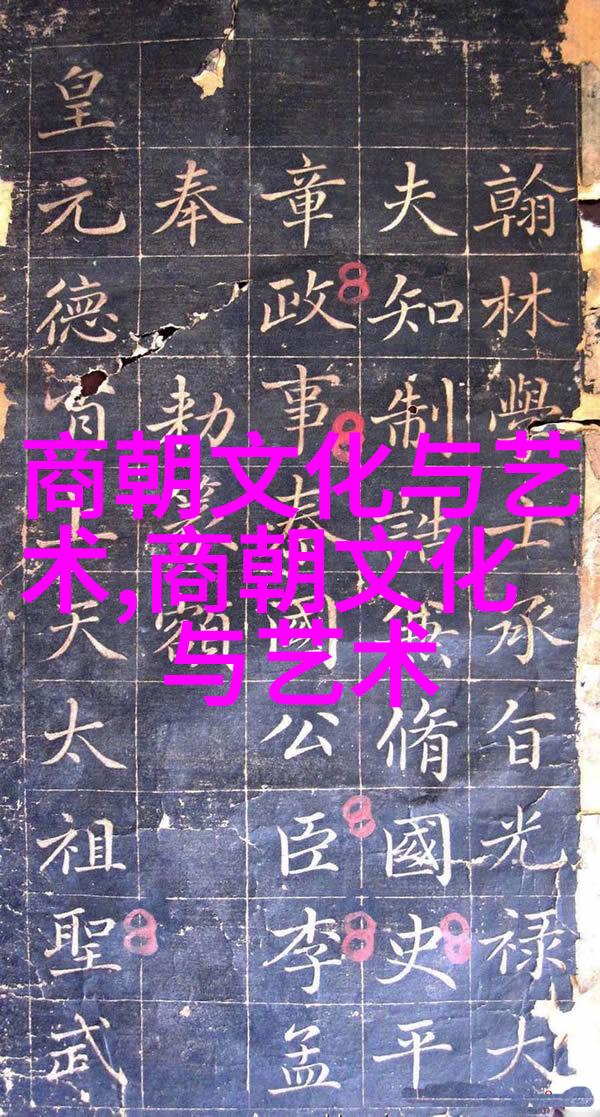 商朝文化与艺
术,商朝文化
与艺术
翰林學士承㫖光禄大
夫知制誥兼脩國史平
章政事秦國公臣李孟
奉勅篆額
皇元德上天太祖聖武